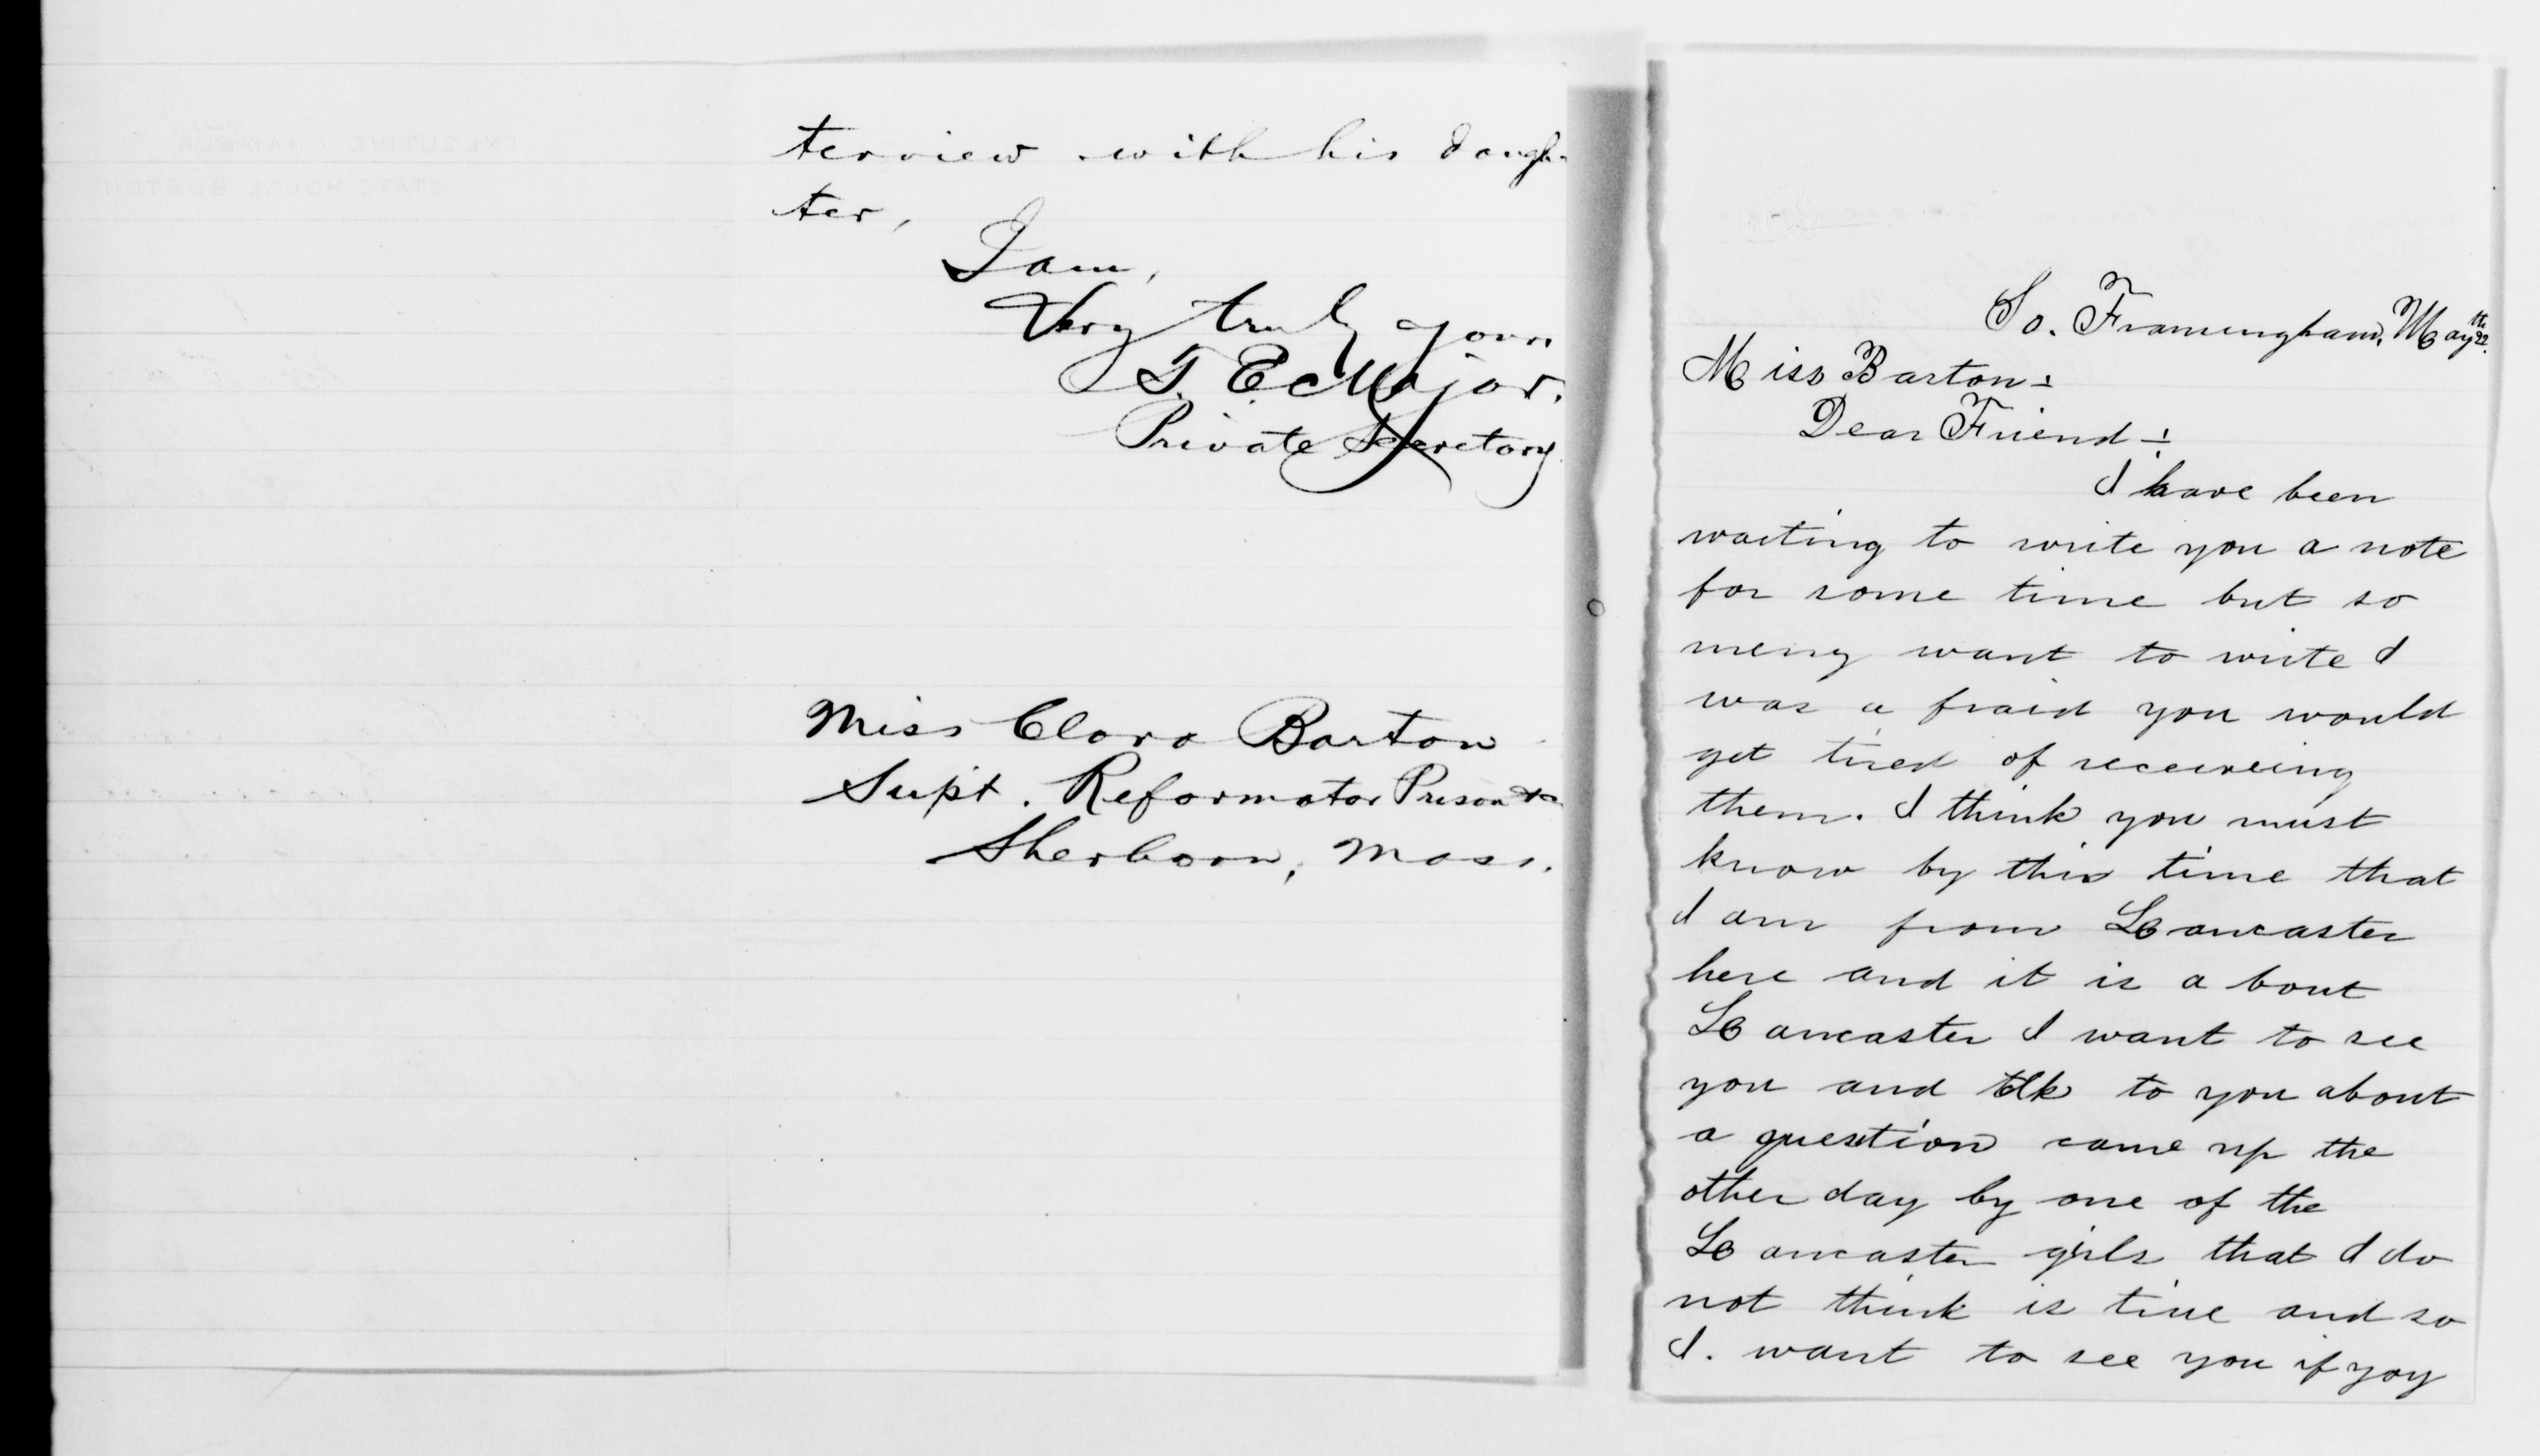 terview with his daugh-
ter,
I am,
Very truly yours
Private Secretary
Miss Clara Barton
Supt. Reformator Prison
Sherborn, Mass.
So. Framingham, May 22th
Miss Barton:
Dear Friend:
I have been
waiting to write you a note
for some time but so
meny want to write I
was a fraid you would
get tired of receiveing
them. I think you must
know by this time that
I am from Lancaster
here and it is a bout
Lancaster I want to see
you and talk to you about
a question came up the
other day by one of the
Lancaster girls that I do
not think is true and so
I. want to see you if yoy